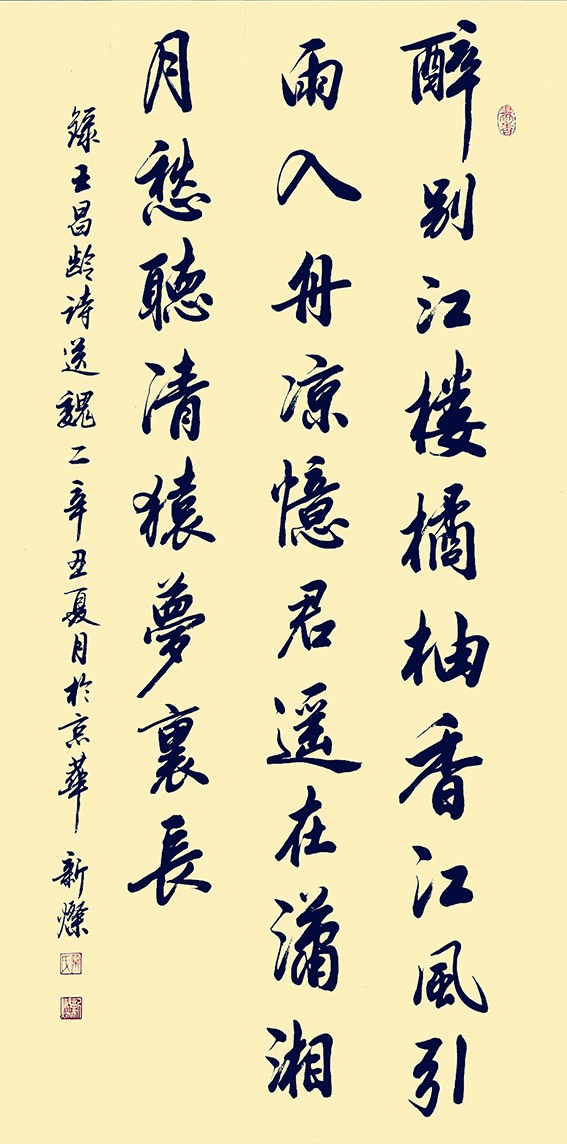 醉别江楼橘柚香江風引
雨入舟凉憶君遥在瀟湘
月愁聽清猿夢裏長
錄王昌龄诗送魏二辛丑夏月於京華 新燦